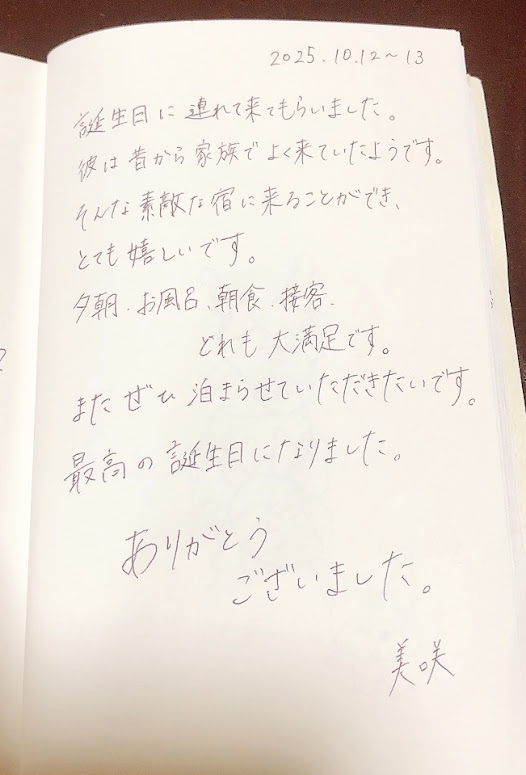 2025.10.12～13
誕生日に連れて来てもらいました。
彼は昔から家族でよく来ていたようです。
そんな素敵な宿に来ることができ、
とても嬉しいです。
夕朝、お風呂、朝食、接客、
どれも大満足です。
またぜひ泊まらせていただきたいです。
最高の誕生日になりました。
ありがとう
ございました。
美咲